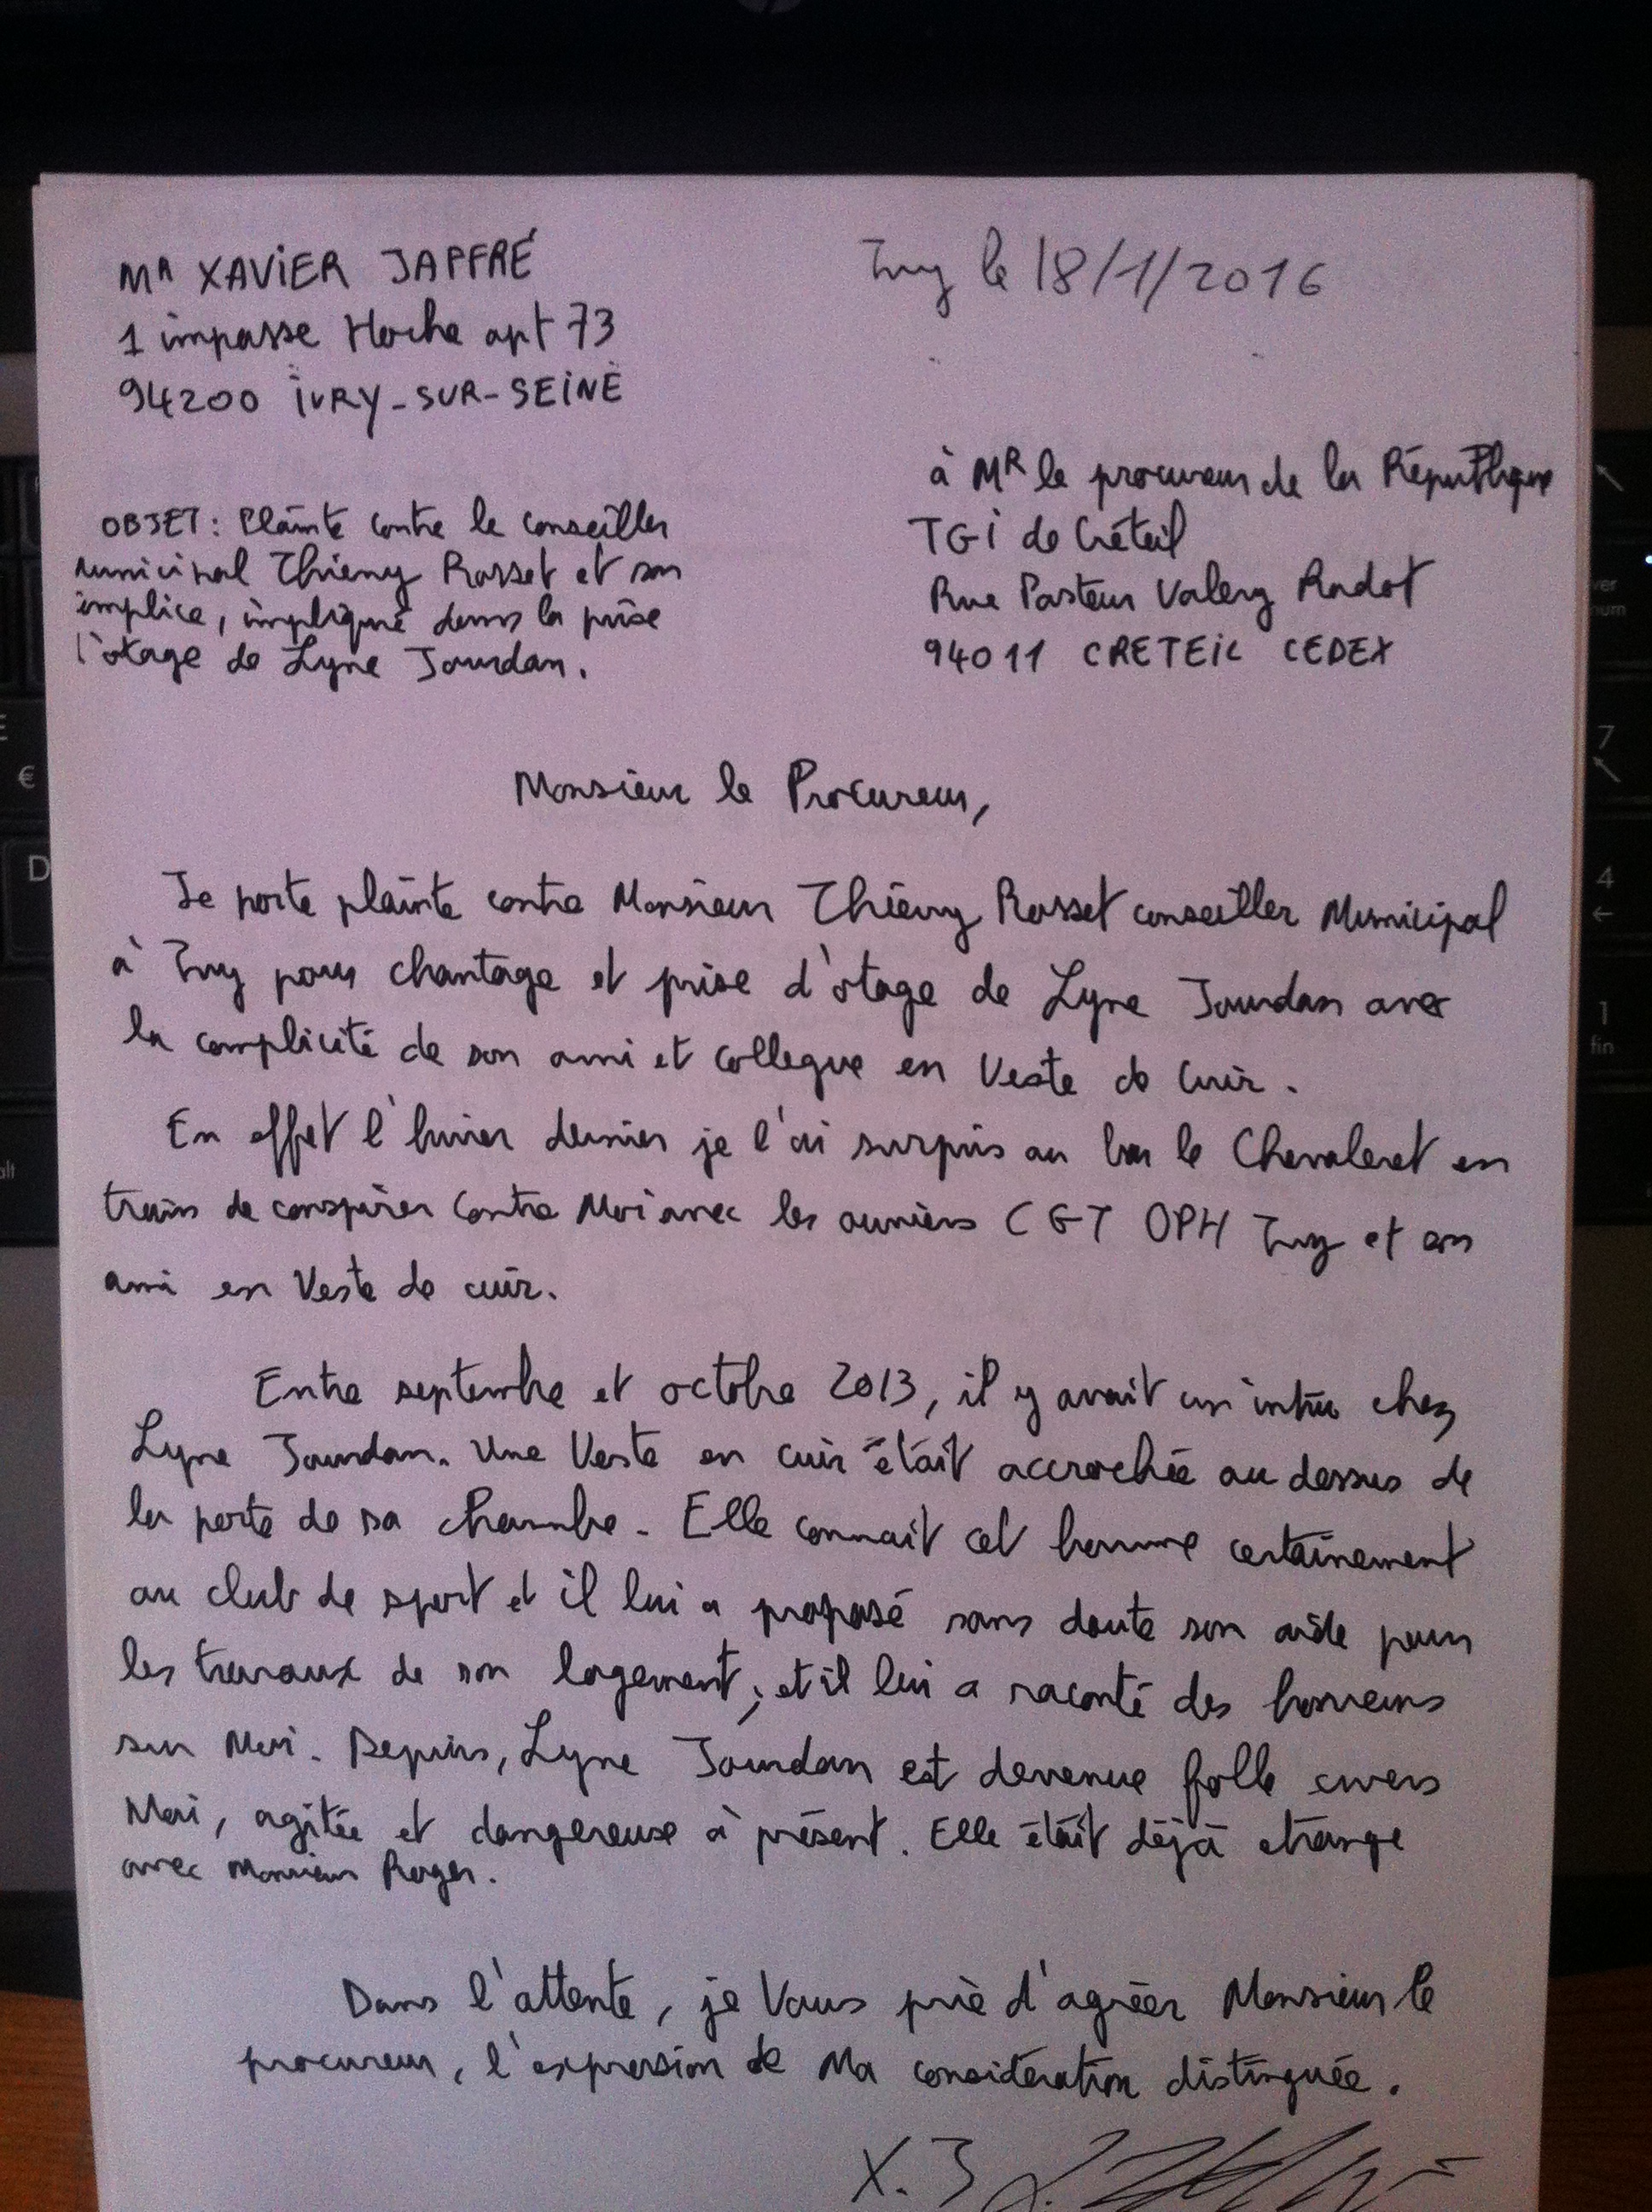 MR XAVIER JAFFRÉ
1 impasse Hoche apt 73
94200 IVRY-SUR-SEINE
Ivry le 18/1/2016
à MR le procureur de la République
TGI de Créteil
Rue Pasteur Valery Radot
94011 CRETEIL CEDEX
OBJET: Plainte contre le conseiller
municipal Thierry Rosset et son
complice, impliqué dans la prise
d'otage de Lyne Jourdan.
Monsieur le Procureur,
Je porte plainte contre Monsieur Thierry Rosset conseiller Municipal
à Ivry pour chantage et prise d'otage de Lyne Jourdan avec
la complicité de son ami et collegue en Veste de Cuir.
En effet l'hiver dernier je l'ai surpris au bar le Chevaleret en
train de conspirer contre Moi avec les ouvriers CGT OPH Ivry et son
ami en Veste de cuir.
Entre septembre et octobre 2013, il y avait un intru chez
Lyne Jourdan. Une Veste en cuir était accrochée au dessus de
la porte de sa chambre. Elle connait cet homme certainement
au club de sport et il lui a proposé sans doute son aide pour
les travaux de son logement, et il lui a raconté des horreurs
sur Moi. Depuis, Lyne Jourdan est devenue folle envers
Moi, agitée et dangereuse à présent. Elle était déjà etrange
avec Monsieur Roger.
Dans l'attente, je Vous prie d'agréer Monsieur le
procureur, l'expression de Ma considération distinguée.
X. J
€
D
7
4
←
1
fin